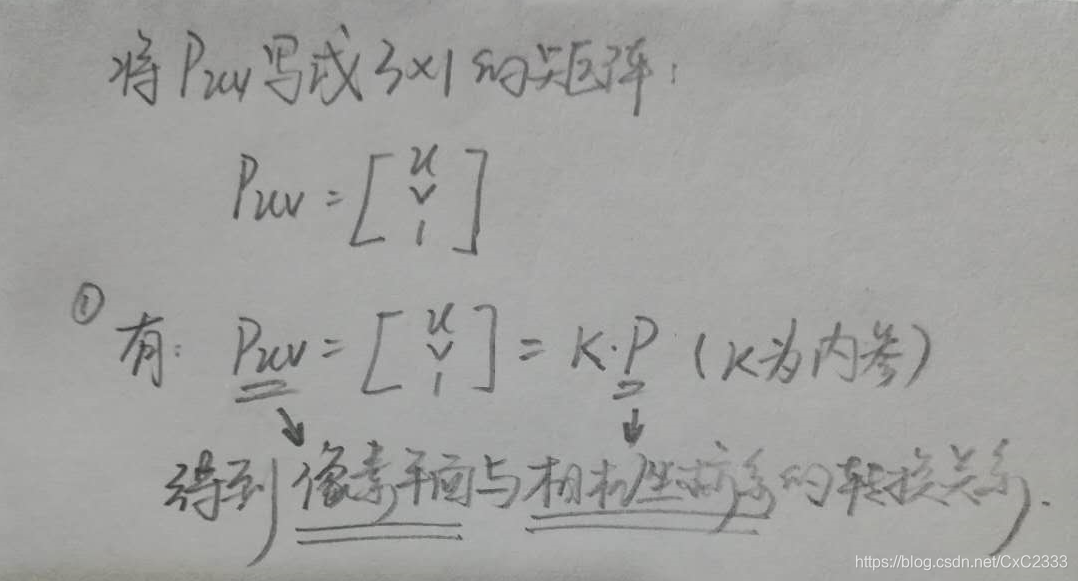 将 Puv 写成 3×1 的矩阵：
Puv = [ u v 1 ]
① 有: Puv = [ u v 1 ] = K·P (K为内参)
得到像素平面与相机坐标系的转换关系.
https://blog.csdn.net/CxC2333